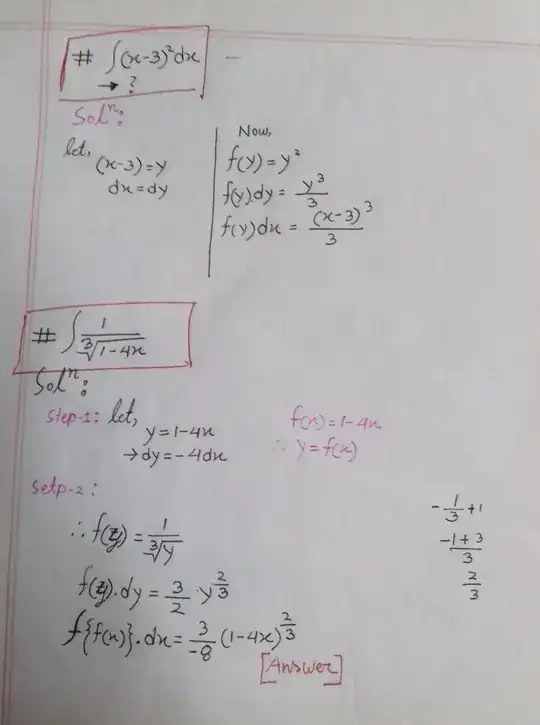 # ∫(x-3)²dx
→ ?
Solⁿ:
let,
(x-3)=y
dx=dy
Now,
f(y)=y²
f(y).dy = y³/3
f(y)dx = (x-3)³/3
# ∫ 1/∛(1-4x)
Solⁿ:
Step-1: let,
y=1-4x
→dy=-4dx
f(x)=1-4x
∴ y=f(x)
Setp-2:
∴ f(y) = 1/∛y
f(y).dy = 3/2 · y^(2/3)
f{f(x)}.dx = 3/-8 (1-4x)^(2/3)
[Answer]
-1/3+1
(-1+3)/3
2/3